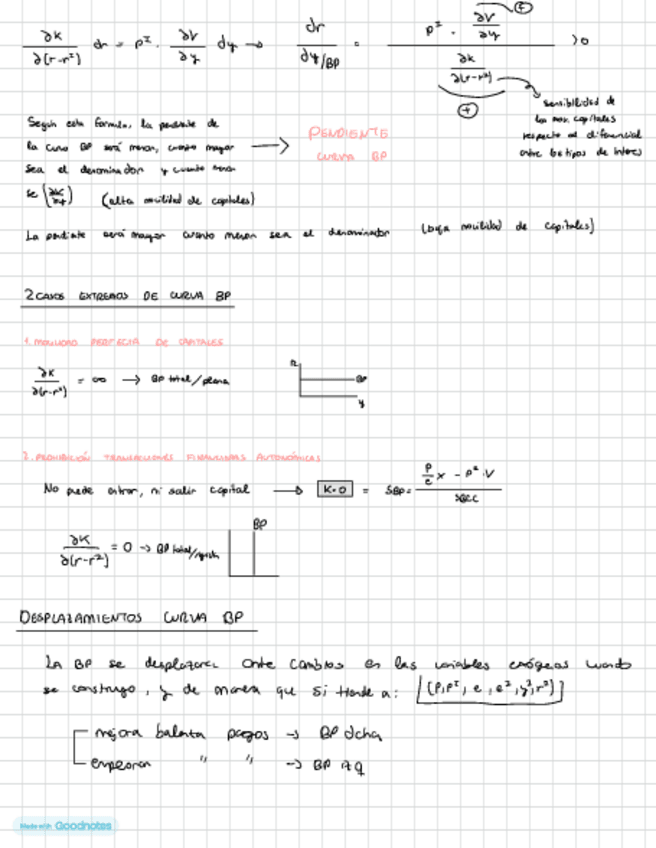 ∂K/∂(r-r^I) dr = p^I · ∂V/∂y dy → dr/dy/BP = p^I · ∂V/∂y / ∂K/∂(r-r^I) > 0
+
+
sensibilidad de
los mov. capitales
respecto al diferencial
entre los tipos de interés
Según esta fórmula, la pendiente de
la curva BP será menor, cuanto mayor
sea el denominador y cuanto menor
se (alta movilidad de capitales)
→ PENDIENTE
CURVA BP
La pendiente será mayor cuanto menor sea el denominador (baja movilidad de capitales)
2 CASOS EXTREMOS DE CURVA BP
1. MOVILIDAD PERFECTA DE CAPITALES
∂K/∂(r-r^I) = ∞ → BP total/plana
r
BP
y
2. PROHIBICIÓN TRANSACCIONES FINANCIERAS AUTONÓMICAS
No puede entrar, ni salir capital → K=0 = SBP= P/e x - p^I · V
SBCC
∂K/∂(r-r^I) = 0 → BP total/
BP
DESPLAZAMIENTOS CURVA BP
LA BP se desplazará ante cambios en las variables exógenas cuando
se construyo, y de manera que si tiende a:
mejora balanza pagos → BP dcha
empeora " " → BP izq
Made with Goodnotes